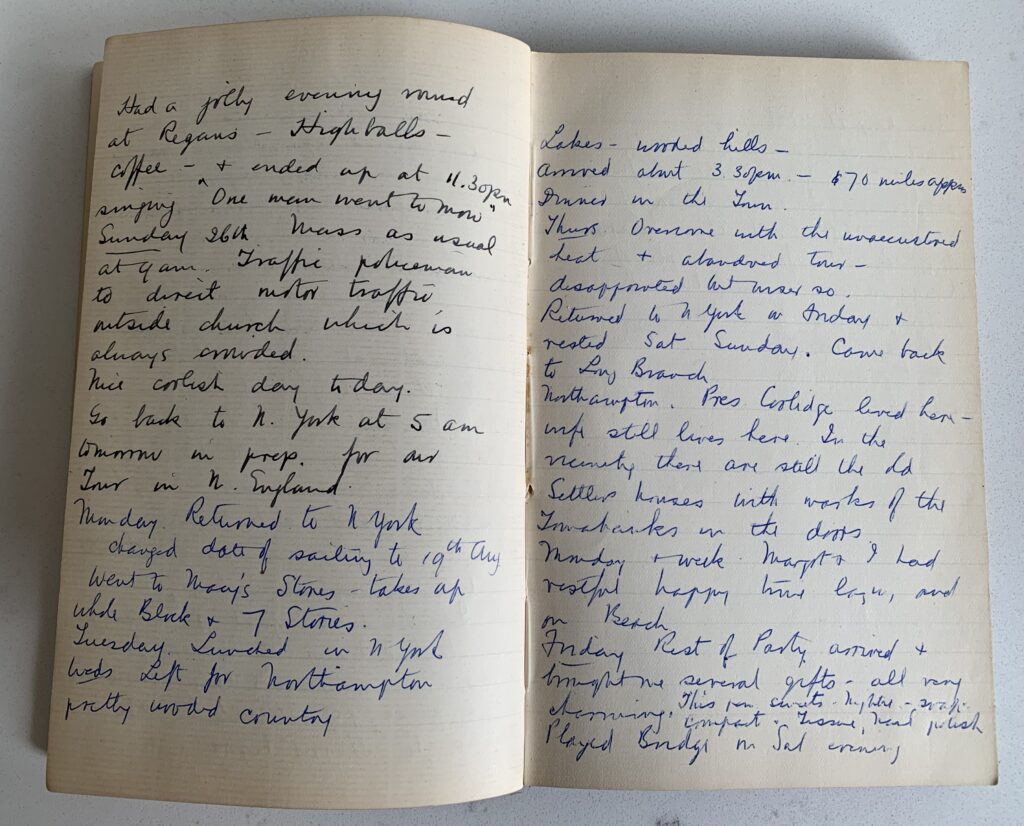 Had a jolly evening round
at Regans - Highballs -
coffee - + ended up at 11.30pm
singing "One man went to mow"
Sunday 26th Mass as usual
at 9 am. Traffic policeman
to direct motor traffic
outside church which is
always crowded.
Nice coolish day today.
Go back to N. York at 5 am
tomorrow in prep. for our
Tour in N. England.
Monday. Returned to N York
changed date of sailing to 19th Aug
Went to Macy's Stores - takes up
whole Block + 7 Stories.
Tuesday. Lunched in N York
Weds Left for Northampton
pretty wooded country
Lakes - wooded hills -
Arrived about 3.30pm. - 70 miles approx
Dinner in the Town.
Thurs Overcome with the unaccustomed
heat + abandoned tour -
disappointed but wiser so.
Returned to N York on Friday +
rested Sat Sunday. Came back
to Long Branch
Northampton. Pres Coolidge lived here -
wife still lives here. In the
vicinity there are still the old
Settlers houses with marks of the
Tomahawks in the doors.
Monday + week. Margot + I had
restful happy time and
on Beach
Friday Rest of Party arrived +
brought me several gifts - all very
charming. This pen sweets - - soap -
compact - Tissue, nail polish
Played Bridge on Sat evening